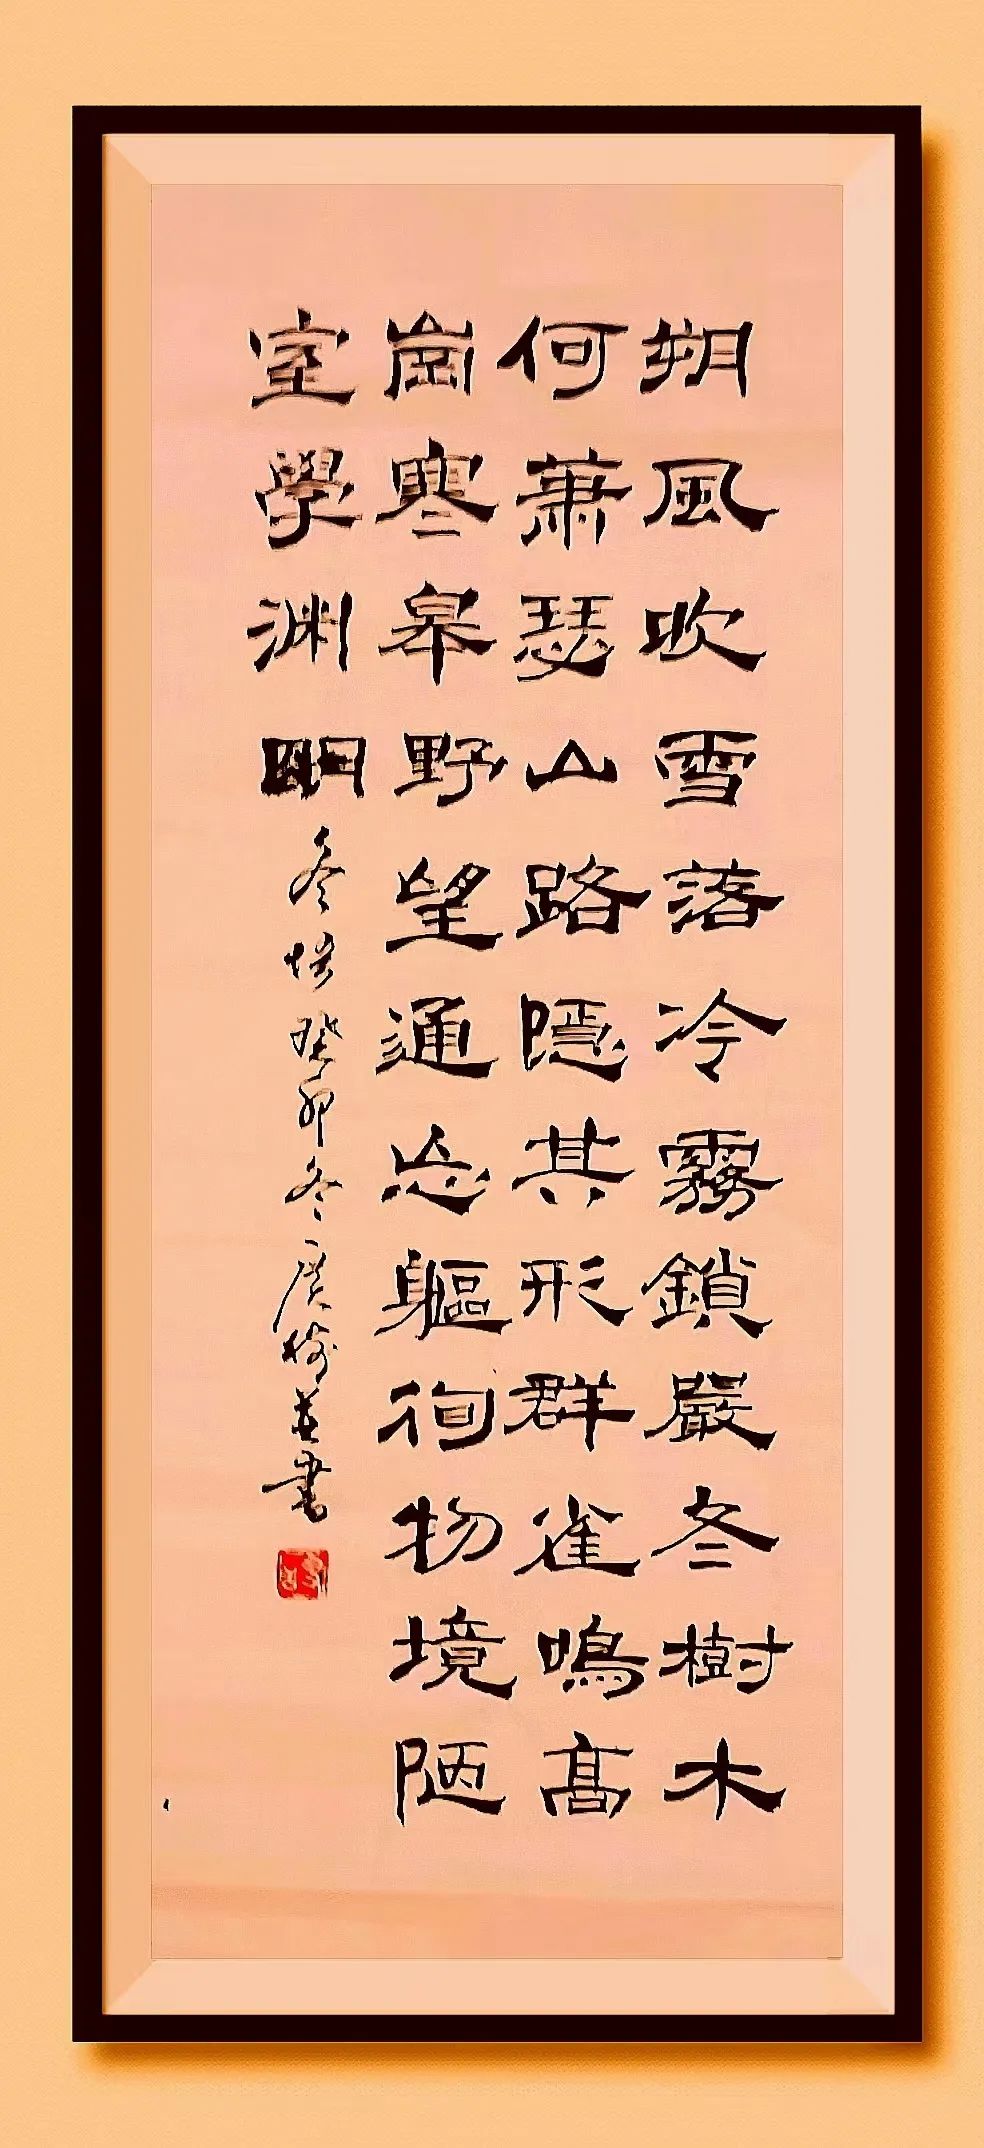 朔風吹雪落冷霧鎖嚴冬樹木
何蕭瑟山路隱其形群雀鳴高
崗寒皋野望通忘軀徇物境陋
室學淵明
冬悟癸卯冬广樹並書